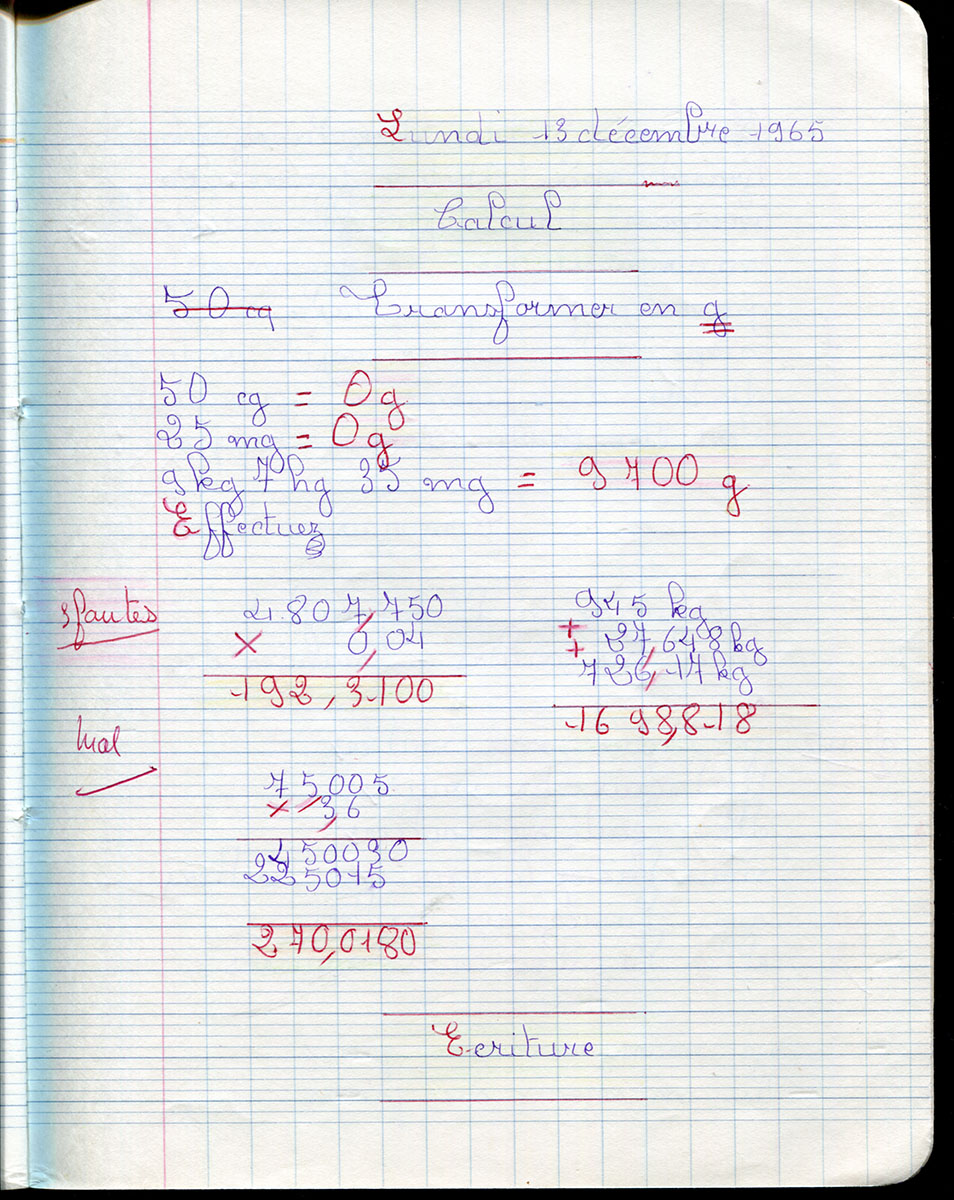 Lundi 13 décembre 1965
Calcul
50 cg Transformer en g
50 cg = 0g
25 mg = 0g
9kg 7hg 35 mg = 9700 g
Effectuez
3 fautes
4807,750
× 0,04
192,3100
945 kg
+ 27,648kg
+ 726,17kg
1698,818
Mal
75,005
× 3,6
450030
225015
270,0180
Ecriture